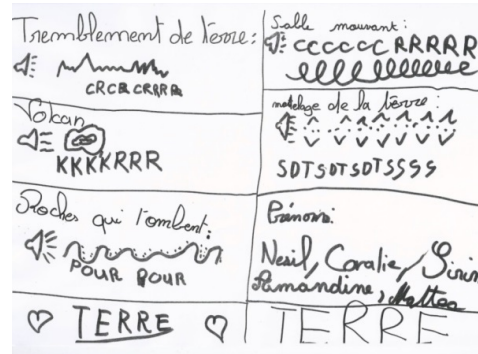 Tremblement de terre:
CRCRCRRRR
Volcan
KKKKRRR
Roches qui tombent:
POUR POUR
TERRE
Salle mouvant:
CCCCCC RRRRR
eeeeeeeeeee
de la terre:
SDTSDTSDTSSSS
Prénoms:
Nesil, Coralie,
Amandine, Matteo
TERRE